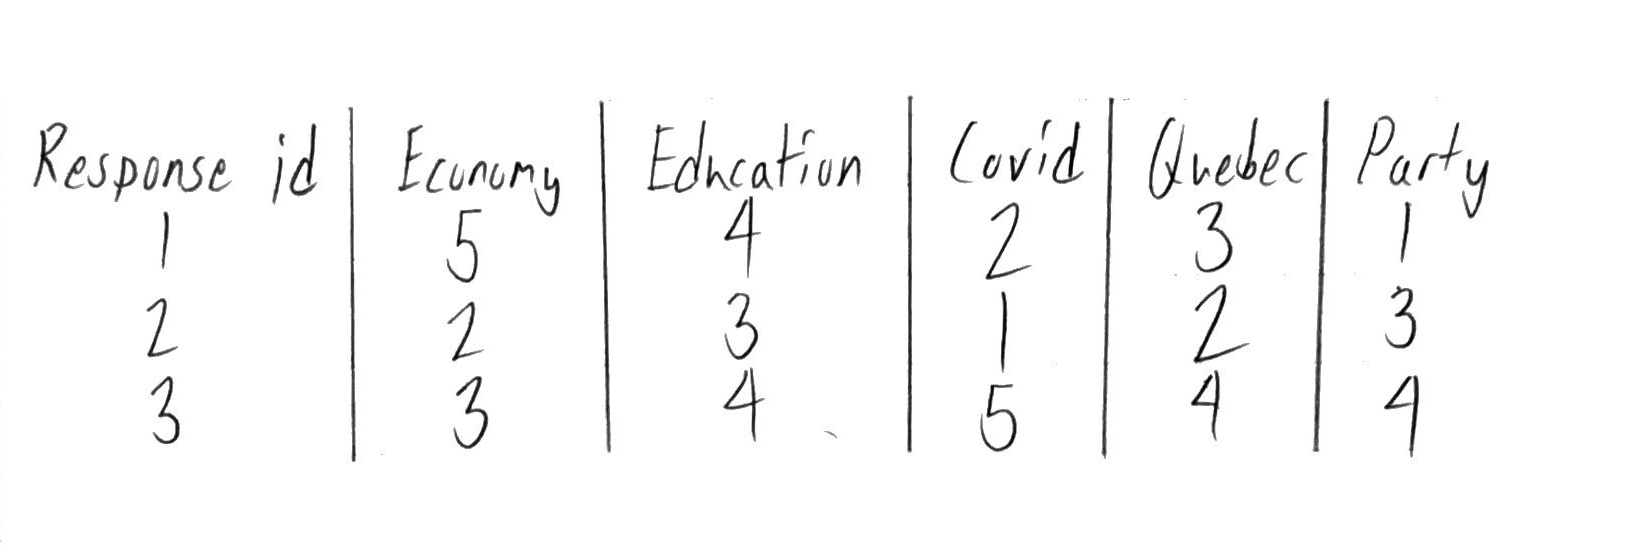 Response id | Economy | Education | Covid | Quebec | Party
1 | 5 | 4 | 2 | 3 | 1
2 | 2 | 3 | 1 | 2 | 3
3 | 3 | 4 | 5 | 4 | 4